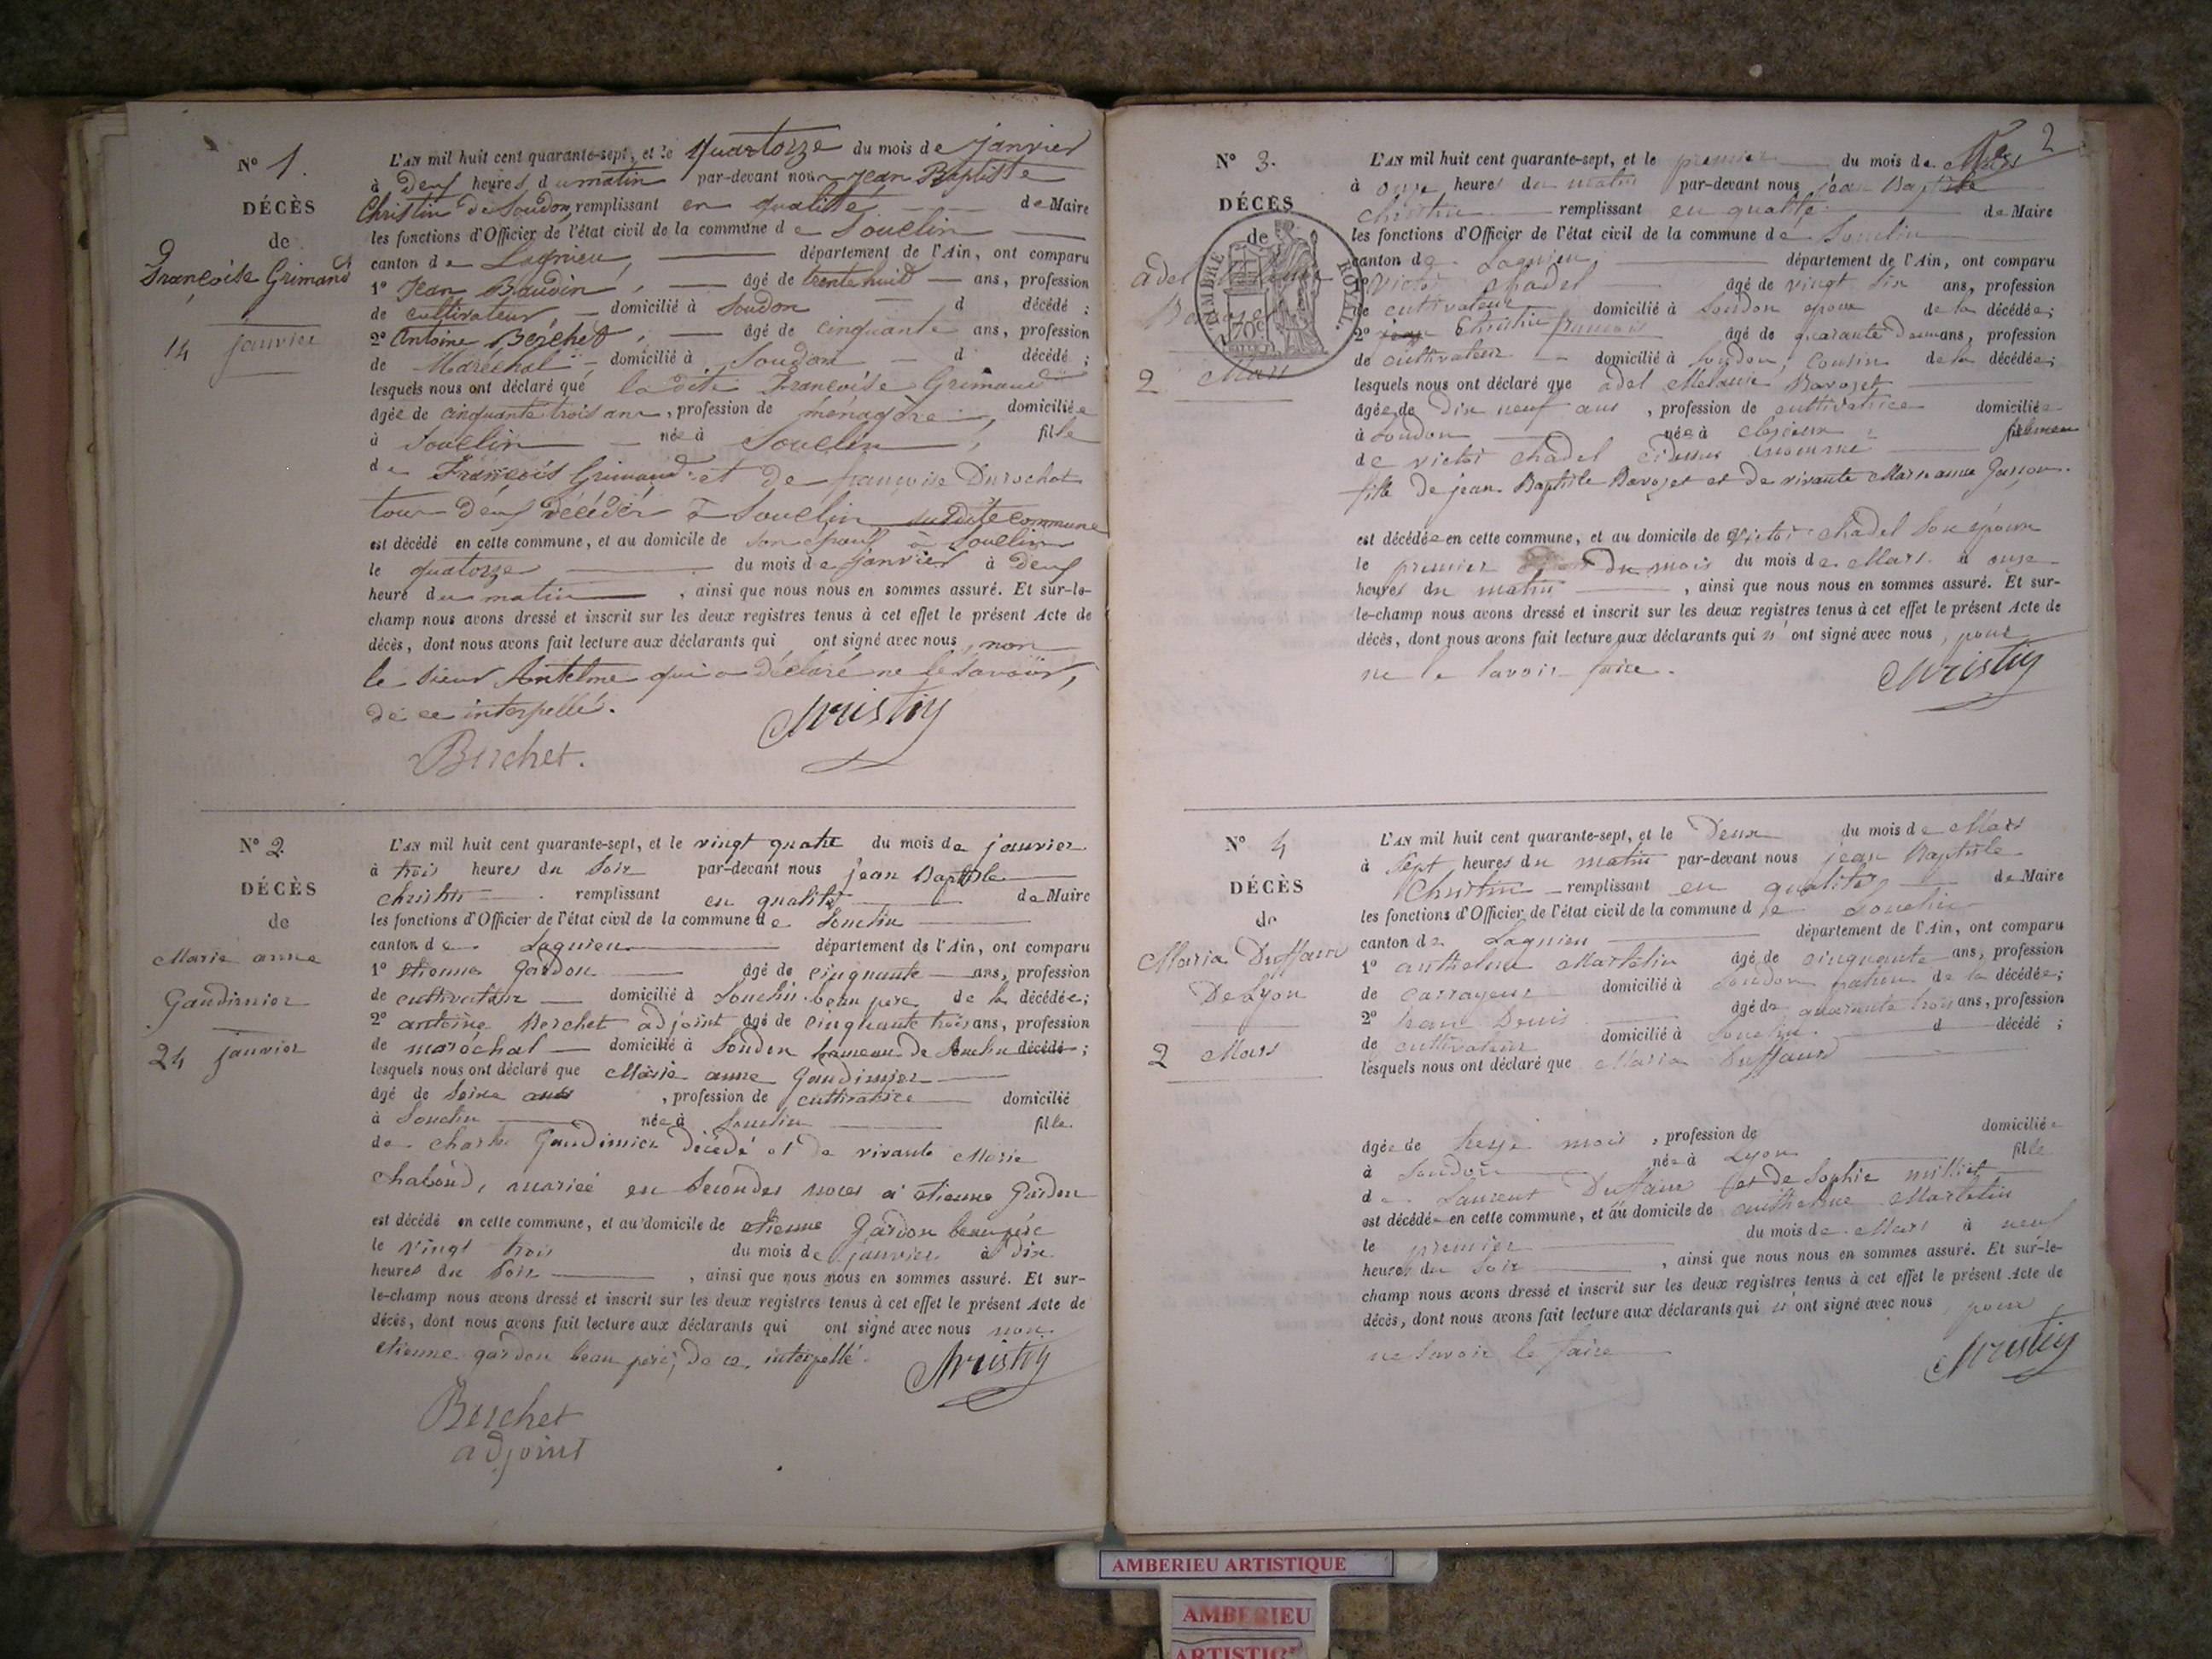 N° 1.
DÉCÈS
de
Françoise Grimand
14 janvier
L'AN mil huit cent quarante-sept, et le Quatorze du mois de janvier
à deux heures du matin par-devant nous Jean Baptiste
Christin de Soudon, remplissant en qualité de Maire
les fonctions d'Officier de l'état civil de la commune de Souclin
canton de Lagnieu, département de l'Ain, ont comparu
1° Jean Baudin, âgé de trente huit ans, profession
de cultivateur domicilié à Soudon d décédé ;
2° Antoine Berchet, âgé de cinquante ans, profession
de Maréchal, domicilié à Soudon d décédé ;
lesquels nous ont déclaré que la dite Françoise Grimand
âgée de cinquante trois ans, profession de ménagère, domiciliée
à Souclin née à Souclin, fille
de François Grimand et de françoise Durochat
tous deux décédés à Souclin susdite commune
est décédé en cette commune, et au domicile de son époux à Souclin
le quatorze du mois de janvier à deux
heure du matin, ainsi que nous nous en sommes assuré. Et sur-le-
champ nous avons dressé et inscrit sur les deux registres tenus à cet effet le présent Acte de
décès, dont nous avons fait lecture aux déclarants qui ont signé avec nous, non
le sieur Antelme qui a déclaré ne le savoir,
de ce interpellé.
Christin
Berchet.
N° 2
DÉCÈS
de
Marie anne
Gaudimier
24 janvier
L'AN mil huit cent quarante-sept, et le vingt quatre du mois de janvier
à trois heures du soir par-devant nous jean Baptiste
christin remplissant en qualité de Maire
les fonctions d'Officier de l'état civil de la commune de Souclin
canton de Lagnieu département de l'Ain, ont comparu
1° étienne Gardon âgé de cinquante ans, profession
de cultivateur domicilié à Souclin beau père de la décédée;
2° antoine Berchet adjoint âgé de cinquante trois ans, profession
de maréchal domicilié à Soudon hameau de Souclin décédé ;
lesquels nous ont déclaré que Marie anne Gaudimier
âgé de seize ans, profession de cultivatrice domicilié
à Souclin née à Souclin fille
de charles Gaudimier décédé et de vivante Marie
chaboud, mariée en secondes noces à étienne Gardon
est décédé en cette commune, et au domicile de étienne Gardon beau père
le vingt trois du mois de janvier à dix
heures du soir, ainsi que nous nous en sommes assuré. Et sur-
le-champ nous avons dressé et inscrit sur les deux registres tenus à cet effet le présent Acte de
décès, dont nous avons fait lecture aux déclarants qui ont signé avec nous non
étienne gardon beau père, de ce interpellé.
Christin
Berchet
adjoint
2
N° 3.
DÉCÈS
de
adel
2 Mars
TIMBRE ROYAL
70c
L'AN mil huit cent quarante-sept, et le premier du mois de Mars
à onze heures du matin par-devant nous jean Baptiste
christin remplissant en qualité de Maire
les fonctions d'Officier de l'état civil de la commune de Souclin
canton de Lagnieu département de l'Ain, ont comparu
1° Victor chadel âgé de vingt six ans, profession
de cultivateur domicilié à Soudon époux de la décédée;
2° Christin françois âgé de quarante deux ans, profession
de cultivateur domicilié à Soudon, cousin de la décédée;
lesquels nous ont déclaré que adel Melanie Bavozet
âgée de dix neuf ans, profession de cultivatrice domiciliée
à Soudon née à
de victor chadel cidessus
fille de jean Baptiste Bavozet et de vivante Marie anne
est décédée en cette commune, et au domicile de victor chadel son époux
le premier du mois du mois de Mars à onze
heures du matin, ainsi que nous nous en sommes assuré. Et sur-
le-champ nous avons dressé et inscrit sur les deux registres tenus à cet effet le présent Acte de
décès, dont nous avons fait lecture aux déclarants qui n'ont signé avec nous, pour
ne le savoir faire.
Christin
N° 4
DÉCÈS
de
Maria Duffaud
De Lyon
2 Mars
L'AN mil huit cent quarante-sept, et le Deux du mois de Mars
à sept heures du matin par-devant nous jean Baptiste
Christin remplissant en qualité de Maire
les fonctions d'Officier de l'état civil de la commune de Souclin
canton de Lagnieu département de l'Ain, ont comparu
1° anthelme Martelin âgé de cinquante ans, profession
de carrayeur domicilié à Soudon de la décédée;
2° Denis âgé de quarante trois ans, profession
de cultivateur domicilié à Souclin d décédé ;
lesquels nous ont déclaré que Maria Duffaud
âgée de treize mois, profession de domiciliée
à Soudon née à Lyon fille
de Laurent et de Sophie milliet
est décédée en cette commune, et au domicile de anthelme Martelin
le premier du mois de Mars à neuf
heures du soir, ainsi que nous nous en sommes assuré. Et sur-le-
champ nous avons dressé et inscrit sur les deux registres tenus à cet effet le présent Acte de
décès, dont nous avons fait lecture aux déclarants qui n'ont signé avec nous pour
ne savoir le faire
Christin
AMBERIEU ARTISTIQUE
AMBERIEU